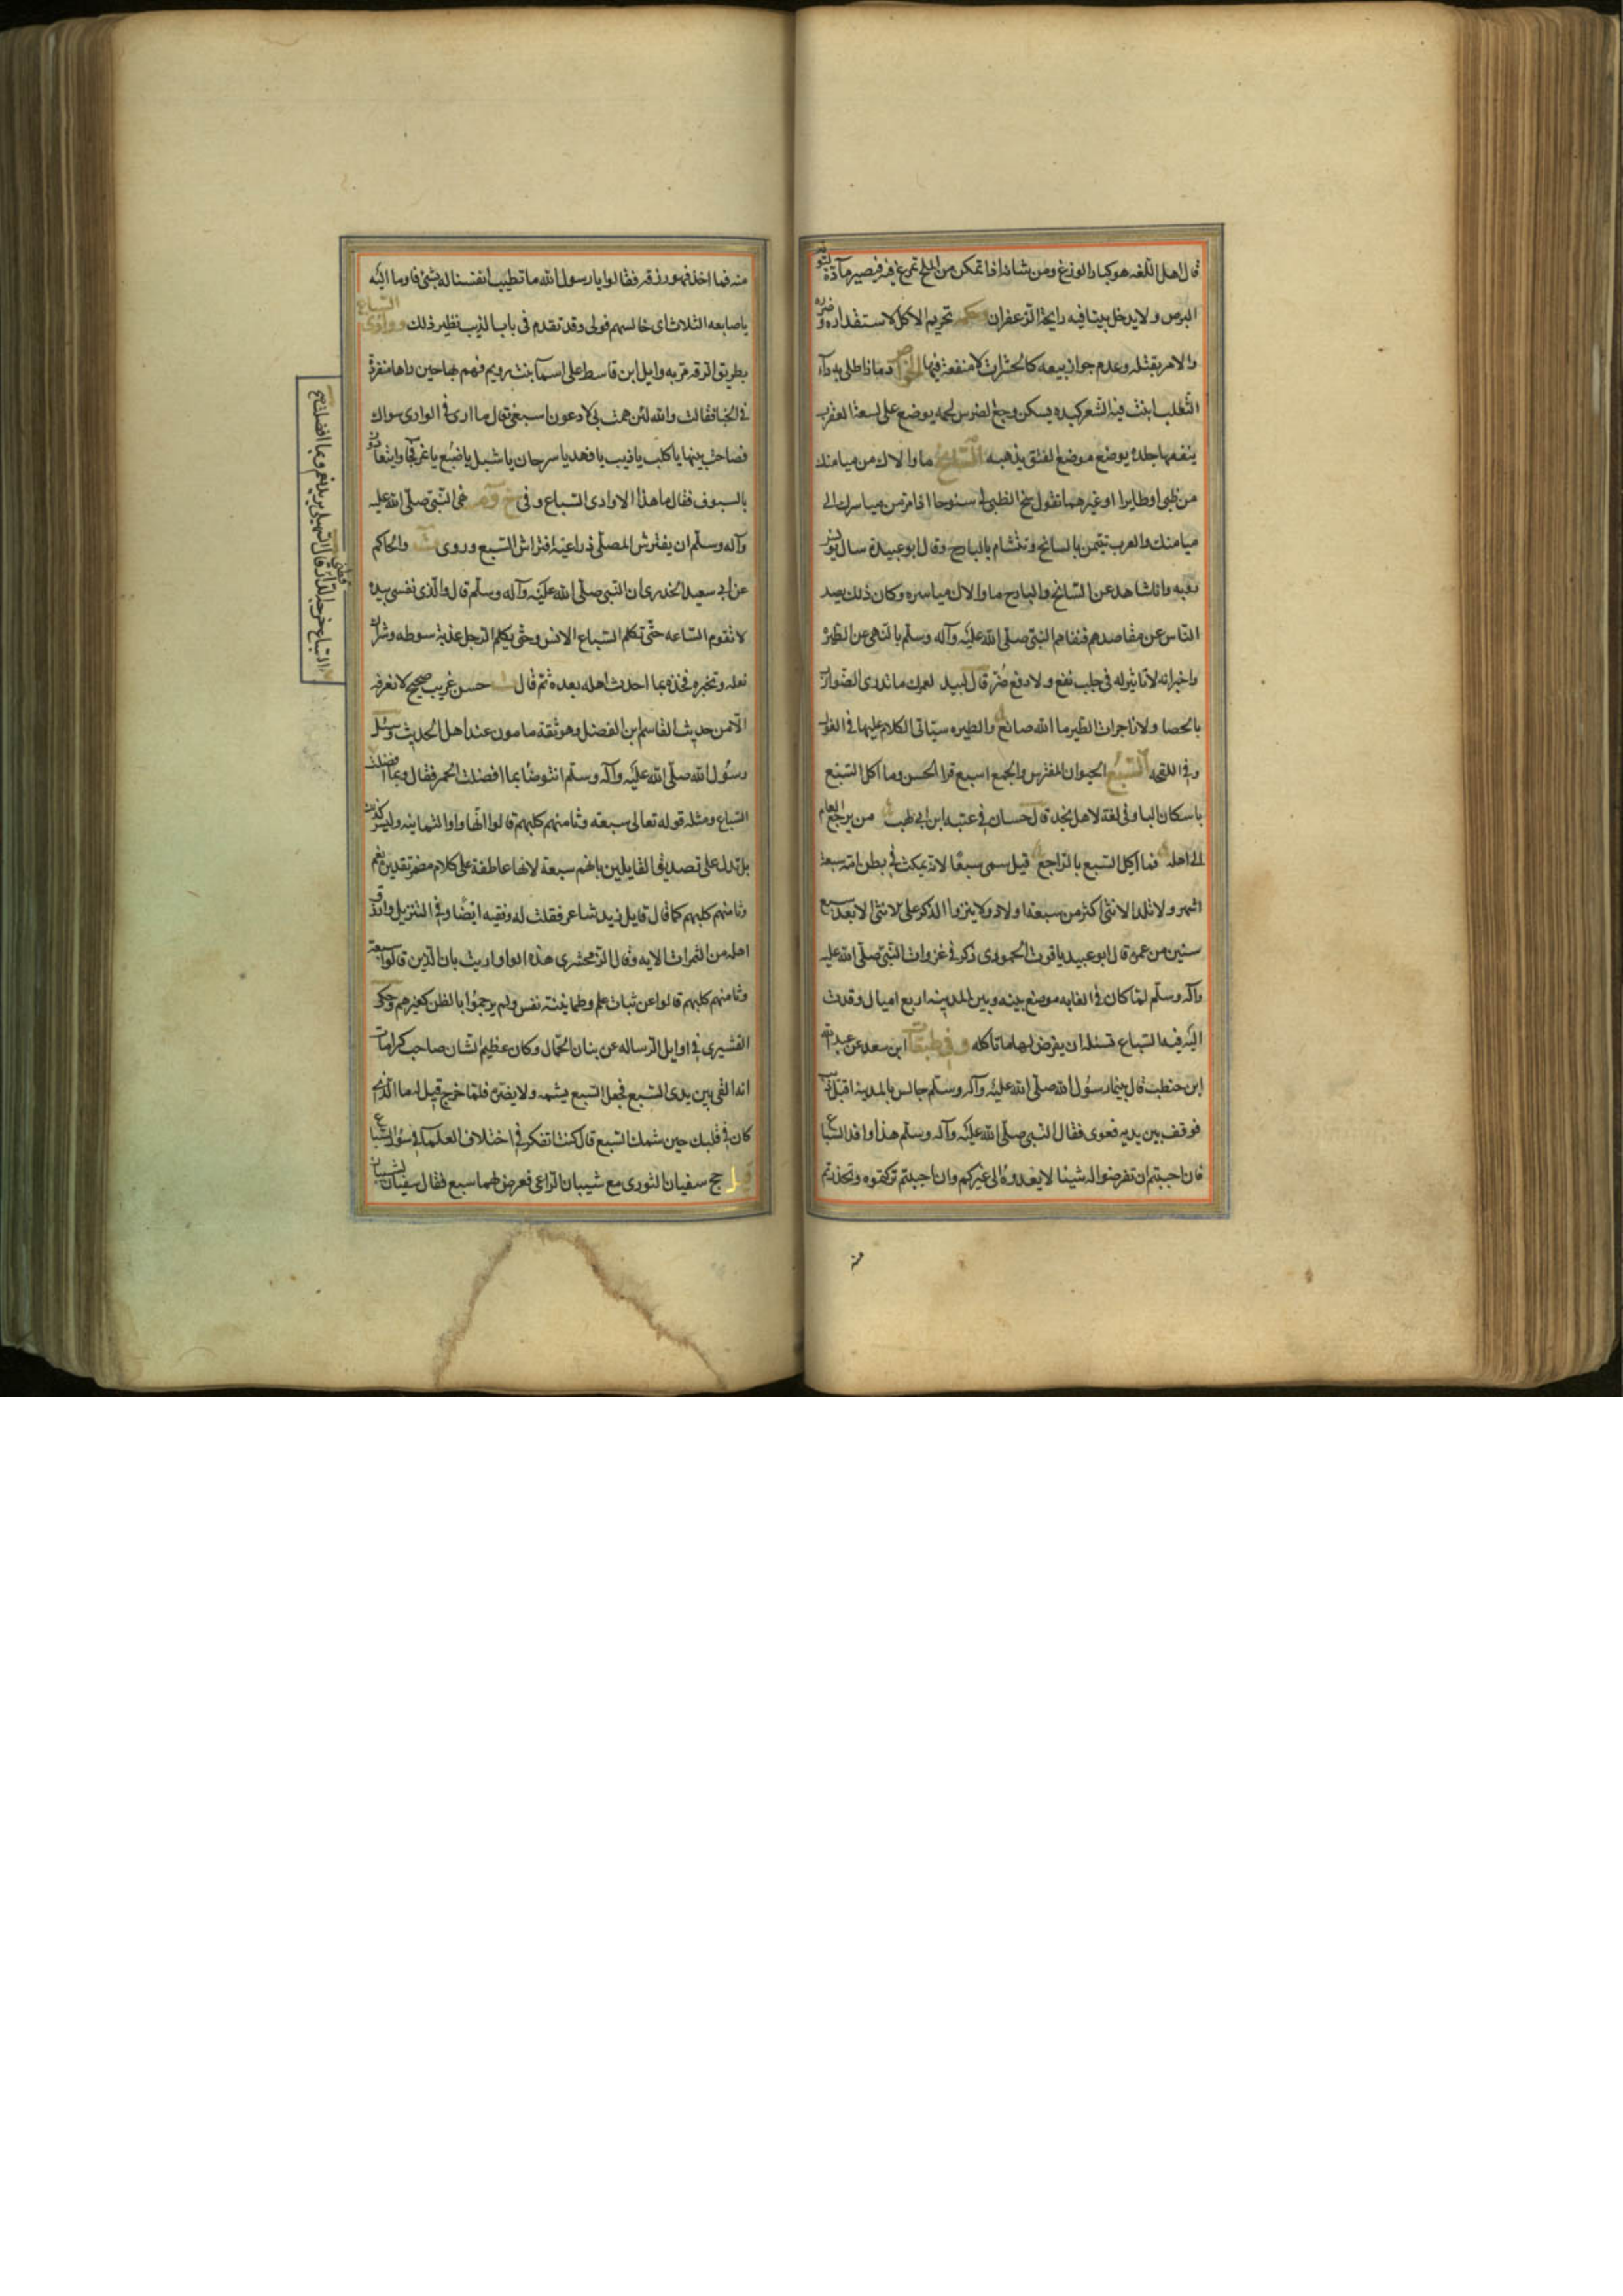 قال اهل اللغه هو كبار الوزغ ومن شانه اذا تمكن من الملح تمرغ فيه فيصير مادة لتولد
البرص ولا يدخل بيتا فيه رايحة الزعفران وحكمه تحريم الاكل لاستقذاره وضرره
والامر بقتله وعدم جواز بيعه كالحشرات لا منفعة فيها الخواص دمه اذا طلى به داء
الثعلب انبت فيه الشعر كبده يسكن وجع الضرس لحمه يوضع على لسعة العقرب
ينفعها جلده يوضع موضع الفتق يذهبه السانح ما والاك من ميامنك
من ظبى او طاير او غيرهما تقول سنح الظبى لى سنوحا اذا مر من مياسرك الى
ميامنك والعرب تتيمن بالسانح وتتشام بالبارح وقال ابو عبيدة سال يونس
رؤبه وانا شاهد عن السانح والبارح ما والاك مياسره وكان ذلك يصد
الناس عن مقاصدهم فنفاهم النبى صلى الله عليه وآله وسلم بالنهى عن الطيرة
واخبر انه لا تاثير له فى جلب نفع ولا دفع ضر قال لبيد لعمرك ما تدرى الضوارب
بالحصا ولا زاجرات الطير ما الله صانع والطيره سياتى الكلام عليها فى
وفى اللقحه السبع الحيوان المفترس والجمع اسبع قرا الحسن وما اكل السبع
باسكان البا وفى لغة لاهل نجد قال حسان فى عتبه ابن ابى لهب من يرجع العام
الى اهله فما اكيل السبع بالراجع قيل سمى سبعا لانه يمكث فى بطن امه سبعة
اشهر ولا تلد الانثى اكثر من سبعة اولاد ولا ينزوا الذكر على الانثى الا بعد سبع
سنين من عمره قال ابو عبيد ياقوت الحموى ذكر فى غزوات النبى صلى الله عليه
وآله وسلم لما كان فى الغابه موضع بينه وبين المدينه اربع اميال وفدت
اليه فيه السباع تسئله ان يفرض لها ما تاكله وفى طبقات ابن سعد عن عبد الله
ابن حنطب قال بينما رسول الله صلى الله عليه وآله وسلم جالس بالمدينه اقبل ذيب
فوقف بين يديه فعوى فقال النبى صلى الله عليه وآله وسلم هذا وافد السباع
فان احببتم ان تفرضوا له شيئا لا يعدوه الى غيركم وان احببتم تركتموه وتحذرتم
منه
منه فما اخذ فهو رزقه فقالوا يا رسول الله ما تطيب انفسنا له بشئ فاوما اليه
باصابعه الثلاث اى خالسهم فولى وقد تقدم فى باب الذيب نظير ذلك ووادى السباع
بطريق الرقه مر به وايل ابن قاسط على اسما بنت رويم فهم بها حين راها منفردة
فى الخبا فقالت والله لئن هممت بى لادعون اسبعى قال ما ارى فى الوادى سواك
فصاحت بينها يا كلب يا ذيب يا فهد يا سرحان يا شبل يا ضبع يا نمر فجاوا يتعادون
بالسيوف فقال ما هذا الا وادى السباع وفى نهى النبى صلى الله عليه
وآله وسلم ان يفترش المصلى ذراعيه افتراش السبع وروى والحاكم
عن ابى سعيد الخدرى ان النبى صلى الله عليه وآله وسلم قال والذى نفسى بيده
لا تقوم الساعه حتى تكلم السباع الانس وحتى يكلم الرجل عذبة سوطه وشراك
نعله وتخبره فخذه بما احدث اهله بعده ثم قال حسن غريب صحيح لا نعرفه
الا من حديث القاسم ابن الفضل وهو ثقة مامون عند اهل الحديث وسئل
رسول الله صلى الله عليه وآله وسلم انتوضا بما افضلت الحمر فقال وبما افضلت
السباع ومثله قوله تعالى سبعه وثامنهم كلبهم قالوا انها واو الثمانيه وليس كذلك
بل تدل على تصديق القايلين بانهم سبعة لانها عاطفة على كلام مضمر تقديره نعم
وثامنهم كلبهم كما قال قايل زيد شاعر فقلت له وفقيه ايضا وفى التنزيل وارزق
اهله من الثمرات الايه وقال الزمخشرى هذه الواو اريث بان الذين قالوا سبعة
وثامنهم كلبهم قالوا عن ثبات علم وطمانينة نفس ولم يرجموا بالظن كغيرهم وحكى
القشيرى فى اوايل الرساله عن بنان الحمال وكان عظيم الشان صاحب كرامات
انه القى بين يدى السبع فجعل السبع يشمه ولا يضره فلما خرج قيل له ما الذى
كان فى قلبك حين شمك السبع قال كنت اتفكر فى اختلاف العلماء فى سؤر السباع
حج سفيان الثورى مع شيبان الراعى فعرض لهما سبع فقال سفيان لشيبان
السباع خرجه الدار قطنى قال السهيلى يريد نعم وبما افضلت